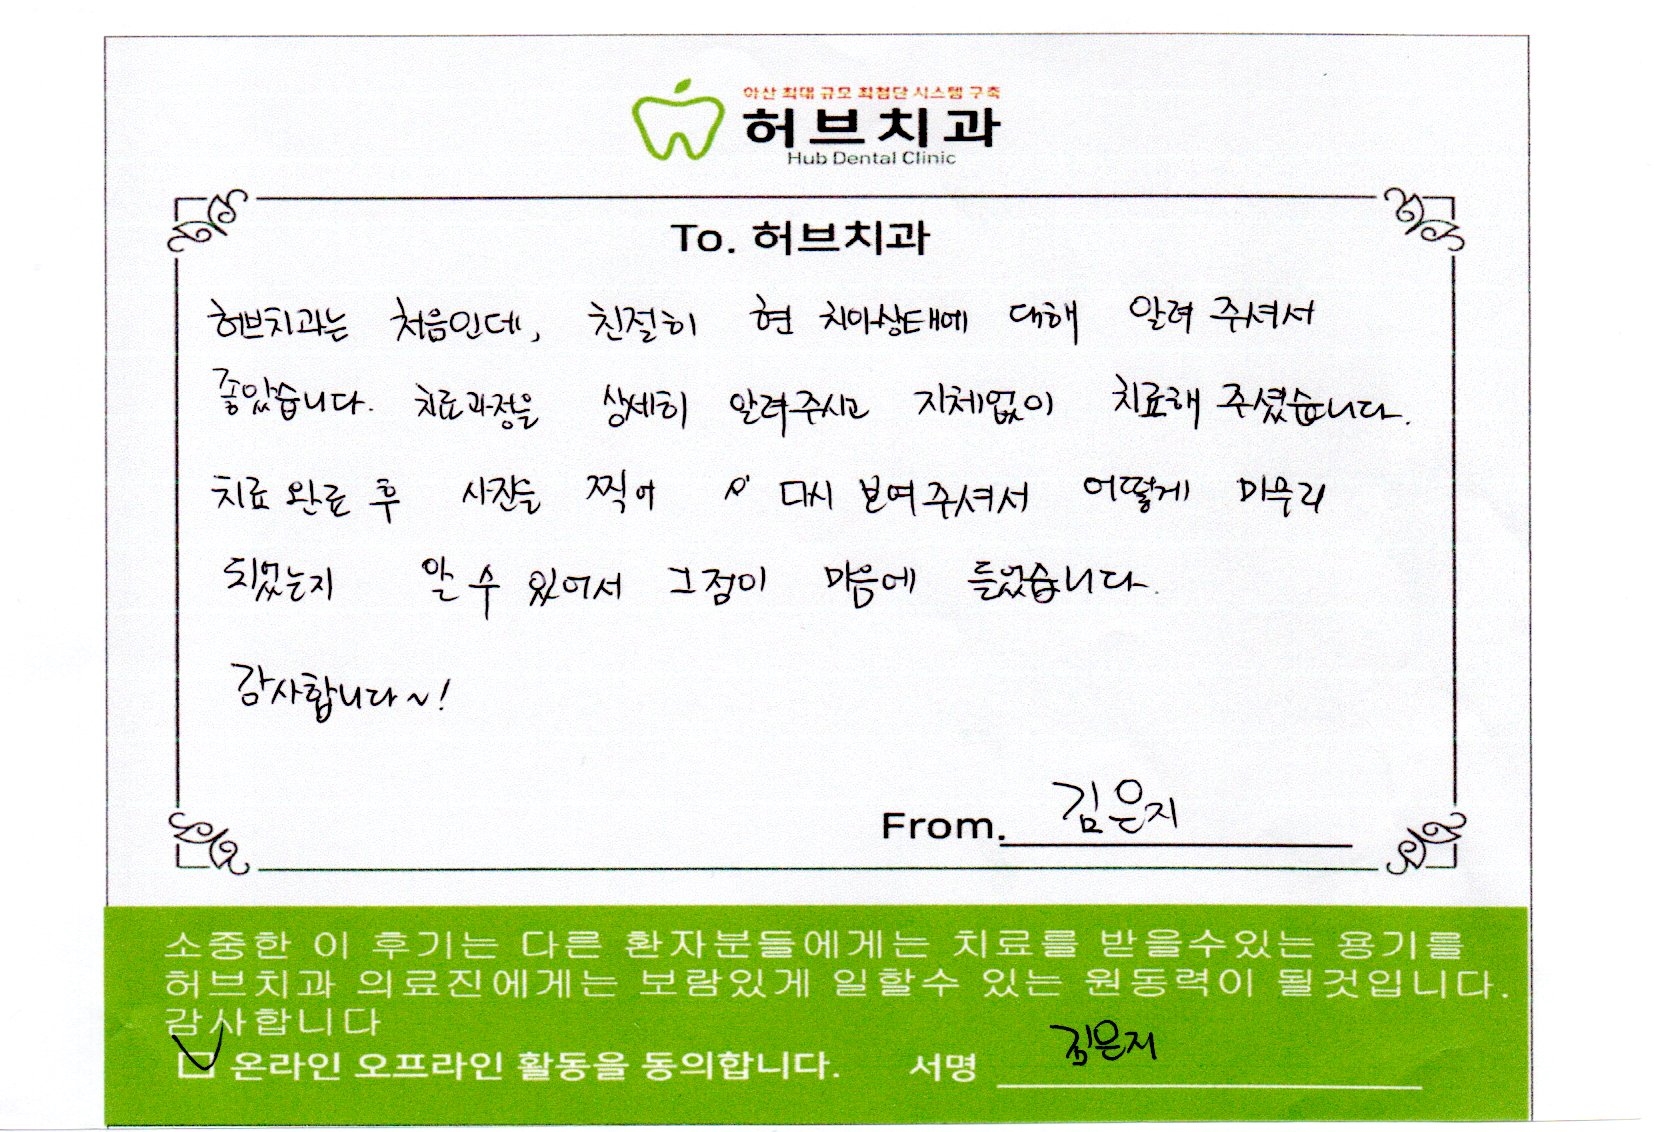 아산 최대 규모 최첨단 시스템 구축
허브치과
Hub Dental Clinic
To. 허브치과
허브치과는 처음인데, 친절히 현 치아상태에 대해 알려 주셔서
좋았습니다. 치료과정을 상세히 알려주시고 지체없이 치료해 주셨습니다.
치료 완료 후 사진을 찍어 다시 보여주셔서 어떻게 마무리
되었는지 알 수 있어서 그점이 마음에 들었습니다.
감사합니다~!
From. 김은지
소중한 이 후기는 다른 환자분들에게는 치료를 받을수있는 용기를
허브치과 의료진에게는 보람있게 일할수 있는 원동력이 될것입니다.
감사합니다
온라인 오프라인 활동을 동의합니다. 서명 김은지